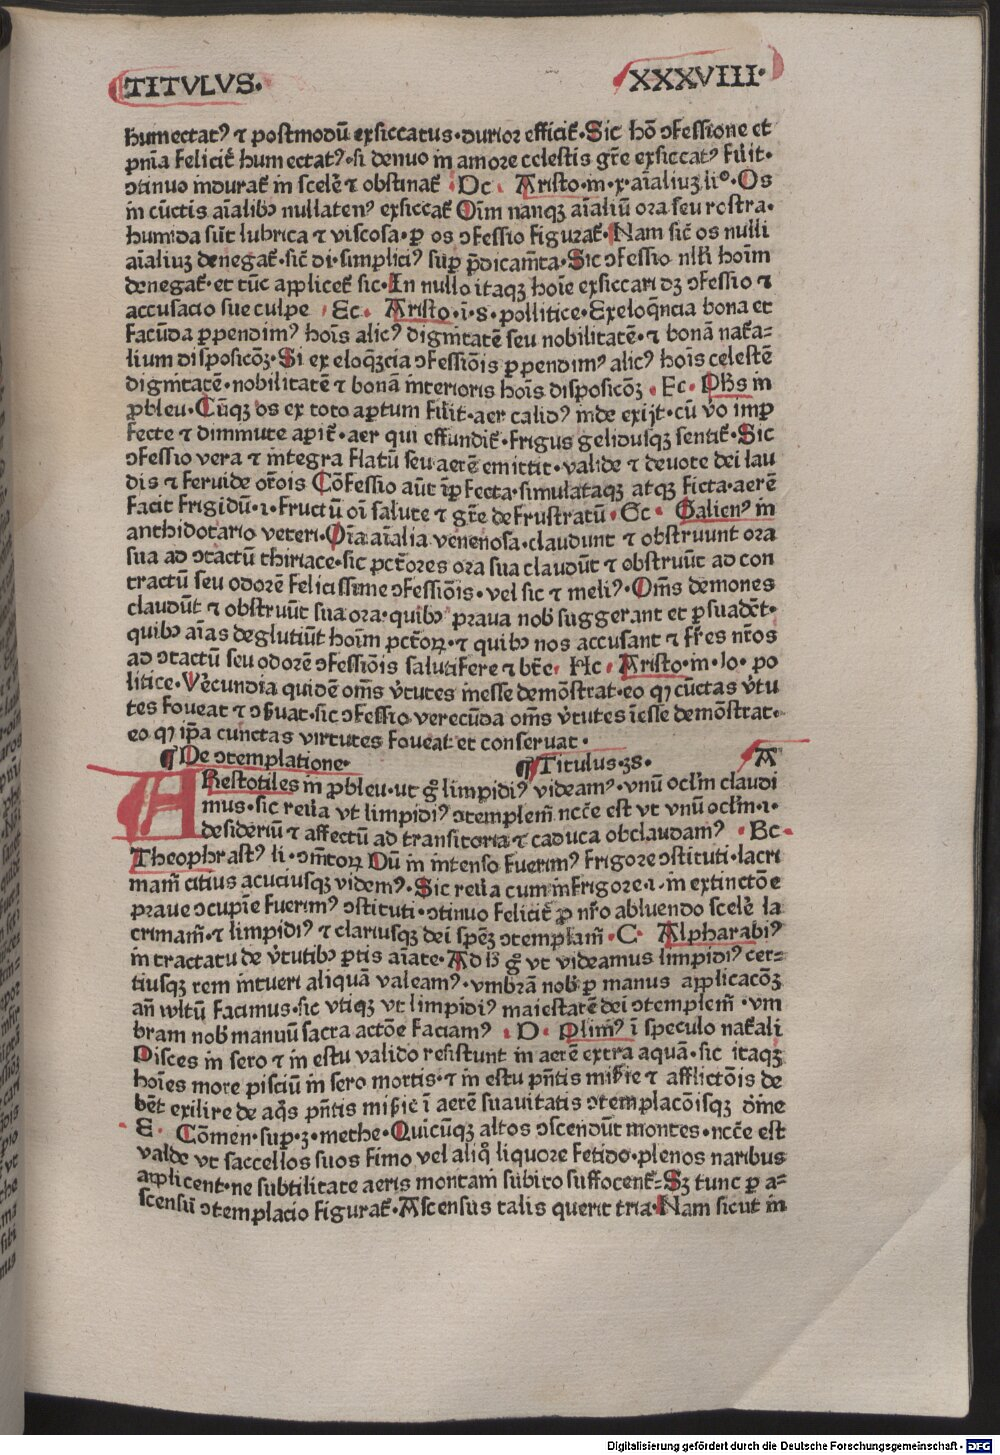 TITVLVS·
XXXVIII·
humectatꝰ ⁊ postmodū exsiccatus·durior efficit̄·Sic hō ɔfessione et
pn̄ia felicit̄ humectatꝰ·si denuo in amore celestis gr̄e exsiccatꝰ fūit·
ɔtinuo indurat̄ in scelē ⁊ obstinat̄ ·Dc· Aristo·in·x·aīaliuꝫ liº·Os
in cūctis aīalibꝫ nullatenꝰ exsiccat̄ Oīm nanqꝫ aīaliū ora seu rostra·
humida sūt lubrica ⁊ viscosa·ꝑ os ɔfessio figurat̄·Nam sic̄ os nulli
aialiuꝫ denegat̄·sic̄ di·simpliciꝰ suꝑ p̄dicam̄ta·Sic ɔfessio nlli hoīm
denegat̄·et tūc applicet̄ sic·In nullo itaqꝫ hoīe exsiccari dꝫ ɔfessio ⁊
accusacio sue culpe ·Ec· Aristo·ī·8·pollitice·Ex eloq̄ncia bona et
facūda ꝑpendimꝰ hoīs alicꝰ dignitatē seu nobilitatē·⁊ bonā nat̄a-
lium disposicōꝫ·Si ex eloqꝫcia ɔfessiōis ꝑpendimꝰ alicꝰ hoīs celestē
dignitatē·nobilitatē ⁊ bonā interioris hoīs disposicōꝫ ·Fc· Ph̄s in
ꝓbleu·Cūqꝫ os ex toto aꝑtum fūit·aer calidꝰ inde exijt·cū v̄o imꝑ
fecte ⁊ diminute aꝑit̄·aer qui effundit̄·frigus gelidusqꝫ sentit̄·Sic
ɔfessio vera ⁊ integra flatū seu aerē emittit·valide ⁊ deuote dei lau
dis ⁊ feruide or̄ois Cōfessio aūt īꝑfecta·simulataqꝫ atqꝫ ficta·aerē
facit frigidū·i·fructū oī salute ⁊ gr̄e defrustratū·Gc· Galienꝰ in
anthidotario veteri·Oīa aīalia venenosa·claudunt ⁊ obstruunt ora
sua ad ɔtactū thiriace·sic pct̄ores ora sua claudūt ⁊ obstruūt ad con
tractū seu odorē felicissime ɔfessiōis·vel sic ⁊ meliꝰ·Om̄s demones
claudūt ⁊ obstruūt sua ora·quibꝫ praua nob̄ suggerant et ꝑsuadēt·
quibꝫ aīas deglutiūt hoīm pct̄oꝝ·⁊ quibꝫ nos accusant ⁊ fr̄es nr̄os
ad ɔtactū seu odorē ɔfessiōis salutifere ⁊ bn̄e· Hc· Aristo·in·Io·po
litice·Vēcundia quidē om̄s v̄tutes inesse demōstrat·eo qꝫ cūctas v̄tu
tes foueat ⁊ ɔs̄uat·sic ɔfessio verecūda om̄s v̄tutes īesse demōstrat·
eo qꝫ ip̄a cunctas virtutes foueat et conseruat·
¶De ɔtemplatione· ¶Titulus·38· A
ARestotiles in ꝓbleu·ut gͥ limpidiꝰ videamꝰ·vnū oclm̄ claudi
mus·sic reuͣa vt limpidiꝰ ɔtemplem̄ necc̄e est vt vnū oclm̄·i·
desideriū ⁊ affectū ad transitoria ⁊ caduca obclaudamꝰ ·Bc·
Theophrastꝰ li·om̄toꝝ Dū in intenso fuerimꝰ frigore ɔstituti·lacri
mam̄ citius acuciusqꝫ videmꝰ·Sic reuͣa cum in frigore·i·in extinctōe
praue ɔcupīe fuerimꝰ ɔstituti·ɔtinuo felicit̄ ꝓ nr̄o abluendo scelē la
crimam̄·⁊ limpidiꝰ ⁊ clariusqꝫ dei spēꝫ ɔtemplam̄·C· Alpharabiꝰ
in tractatu de v̄tutibꝫ ꝑtis aīate·Ad h̄ gͥ vt videamus limpidiꝰ cer-
tiusqꝫ rem intueri aliquā valeamꝰ·vmbrā nob̄ ꝑ manus applicacōꝫ
an̄ vultū facimus·sic vtiqꝫ vt limpidiꝰ maiestatē dei ɔtemplem̄·vm
bram nob̄ manuū sacra actōe faciamꝰ ·D· Pliniꝰ ī speculo nat̄ali
Pisces in sero ⁊ in estu valido resistunt in aerē extra aquā·sic itaqꝫ
hoīes more pisciū in sero mortis·⁊ in estu pn̄tis mis̄ie ⁊ afflictōis de
bēt exilire de aq̄s pn̄tis mis̄ie ī aerē suauitatis ɔtemplacōisqꝫ diīne
E· Cōmen·suꝑ·3·methe·Quicūqꝫ altos ɔscendūt montes·necc̄e est
valde vt saccellos suos fimo vel aliqͦ liquore fetido·plenos naribus
applicent·ne subtilitate aeris montani subito suffocent̄·Sꝫ tunc ꝑ a-
scensū ɔtemplacio figurat̄·Ascensus talis querit tria·Nam sicut in
Digitalisierung gefördert durch die Deutsche Forschungsgemeinschaft · DFG